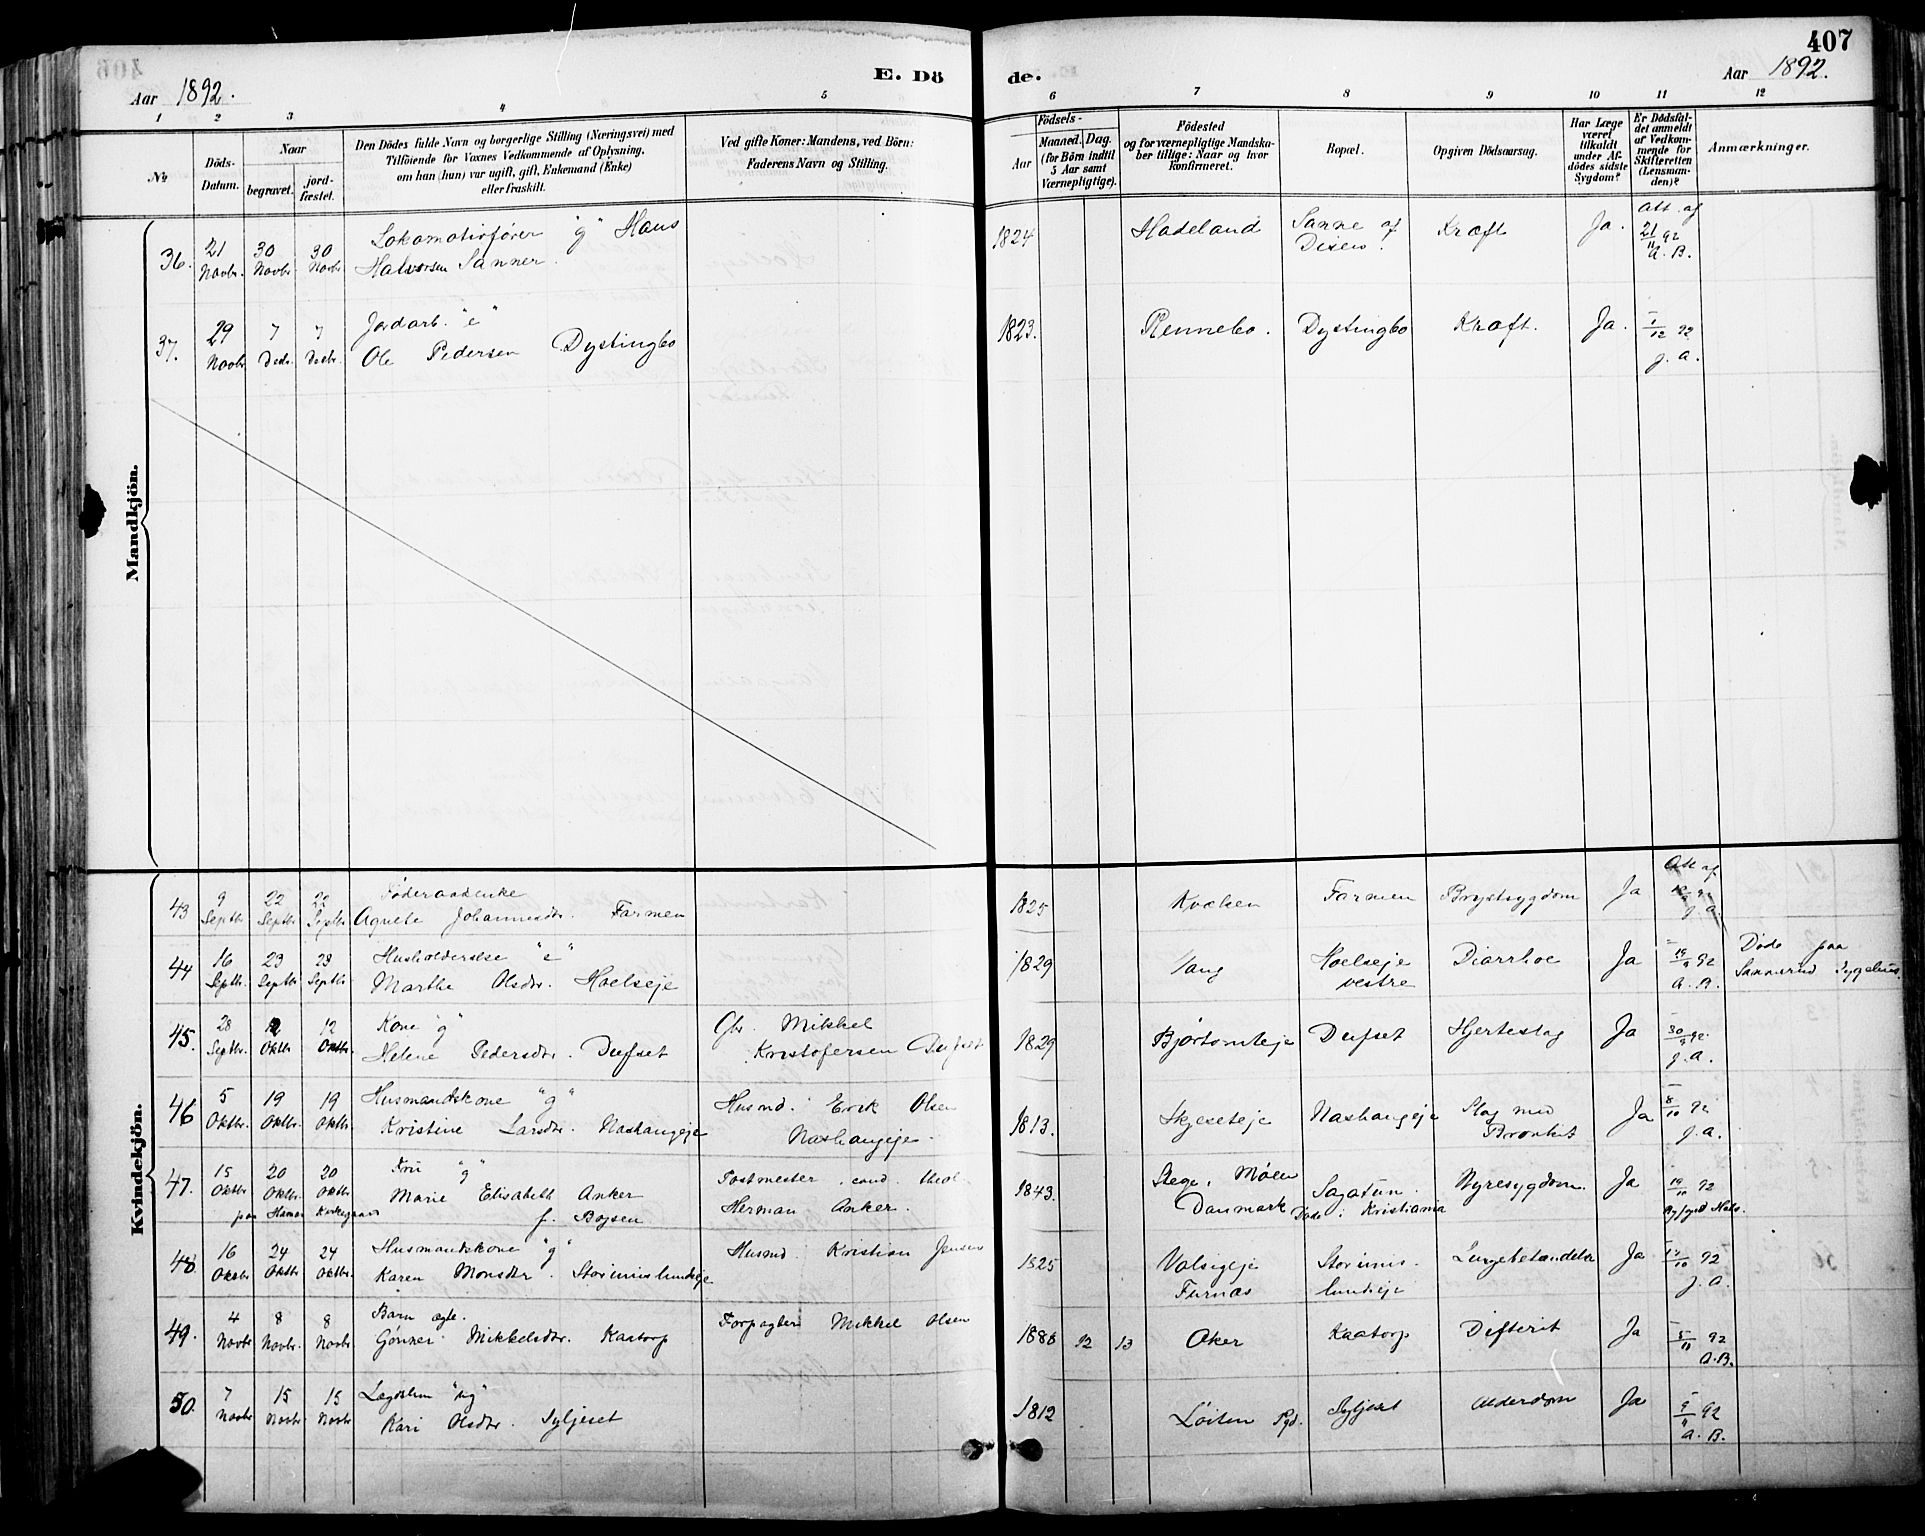 407
Aar 1892.
E. Dö
de.
Aar 1892.
1 2 3 4 5 6 7 8 9 10 11 12
No
Döds-
Datum.
Naar
begravet.
jord-
fæstet.
Den Dödes fulde Navn og borgerlige Stilling (Næringsvei) med
Tilföiende for Voxnes Vedkommende af Oplysning,
om han (hun) var ugift, gift, Enkemand (Enke)
eller fraskilt.
Ved gifte Koner: Mandens, ved Börn:
Faderens Navn og Stilling.
Födsels-
Aar
Maaned.
Dag.
(for Börn indtil
5 Aar samt
Værnepligtige).
Födested
og for værnepligtige Mandska-
ber tillige: Naar og hvor
konfirmeret.
Bopæl.
Opgiven Dödsaarsag.
Har Læge
været
tilkaldt
under Af-
dödes sidste
Sygdom?
Er Dödsfal-
det anmeldt
af Vedkom-
mende for
Skifteretten
(Lensman-
den)?
Anmærkninger.
Mandkjön.
36. 21 Novbr. 30 Novbr. 30 Novbr. Lokomotivfører "g" Hans
Halvorsen Sanner.
1824 Hadeland Sanne af
Disen. Kræft Ja. Att. af
21/11 92
A. B.
37. 29 Novbr. 7 Decbr. 7 Decbr. Jordarb. "e"
Ole Pedersen Dystingbo
1823. Rennebo. Dystingbo Kræft. Ja. 1/12 92
J. A.
Kvindekjön.
43 9 Septbr 22 Septbr 22 Septbr Føderaadsenke
Agnete Johannesdtr. Farmen
1825 Kvælsen Farmen Brystsygdom Ja Att af
12/9 92
J. A.
44 16 Septbr. 23 Septbr 23 Septbr Husholderske "e"
Marthe Olsdtr. Hoelseje
1829 Vang Hoelseje
vestre Diarrhoe Ja 19/9 92
A. B. Døde paa
Sannerud Sygehus
45. 28 Septbr. 12 Oktbr 12 Oktbr. Kone "g"
Helene Pedersdtr. Dufset
Gbr. Mikkel
Kristofersen Dufset
1829 Bjørtomteje Dufset Hjerteslag Ja 30/9 92
J. A.
46 5 Oktbr. 19 Oktbr. 19 Oktbr. Husmandskone "g"
Kristine Larsdtr. Nashaugeje
Husmd. Erik Olsen
Nashaugeje.
1813. Skjeseteje Nashaugeje Slag med
Bronkit Ja 8/10 92
J. A.
47. 15 Oktbr 20 Oktbr 20 Oktbr Fru "g"
paa Hamar Kirkegaard
Marie Elisabeth Anker
f. Bojsen
Postmester, cand. theol.
Herman Anker.
1843. Stege, Møen
Danmark Sagatun.
Døde i Kristiania Nyresygdom. Ja 19/10 92
48 16 Oktbr 24 Oktbr 24 Oktbr. Husmandskone "g"
Karen Monsdtr. Storimislundeje
Husmd. Kristian Jensen
1825 Valsigeje
Furnæs Storimis-
lundeje Lungebetændelse Ja 17/10 92
J. A.
49. 4 Novbr 8 Novbr. 8 Novbr. Barn ægte.
Gønner Mikkelsdtr. Kaatorp
Forpagter Mikkel Olsen
1888 12 13 Aker Kaatorp Difterit Ja 5/11 92
A. B.
50. 7 Novbr 15 Novbr. 15 Novbr Lægdslem "ug"
Kari Olsdtr. Syljeset
1812 Løiten Pgd. Syljeset Alderdom Ja 9/11 92
A. B.